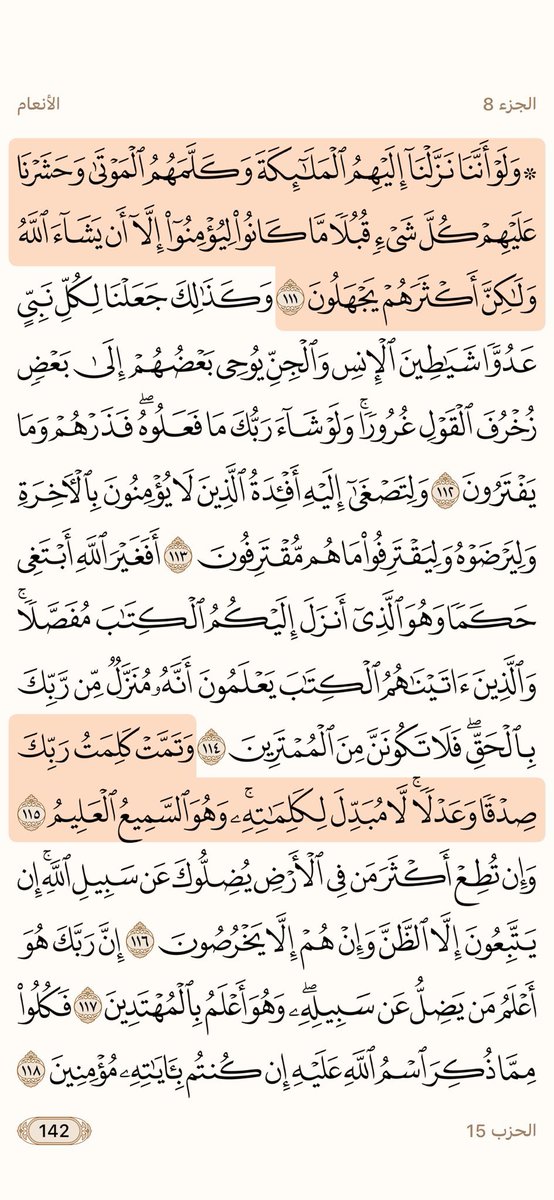 الجزء 8
الأنعام
* وَلَوْ أَنَّنَا نَزَّلْنَآ إِلَيْهِمُ ٱلْمَلَٰٓئِكَةَ وَكَلَّمَهُمُ ٱلْمَوْتَىٰ وَحَشَرْنَا
عَلَيْهِمْ كُلَّ شَىْءٍ قُبُلًا مَّا كَانُوا۟ لِيُؤْمِنُوٓا۟ إِلَّآ أَن يَشَآءَ ٱللَّهُ
وَلَٰكِنَّ أَكْثَرَهُمْ يَجْهَلُونَ ١١١ وَكَذَٰلِكَ جَعَلْنَا لِكُلِّ نَبِىٍّ
عَدُوًّا شَيَٰطِينَ ٱلْإِنسِ وَٱلْجِنِّ يُوحِى بَعْضُهُمْ إِلَىٰ بَعْضٍ
زُخْرُفَ ٱلْقَوْلِ غُرُورًا ۚ وَلَوْ شَآءَ رَبُّكَ مَا فَعَلُوهُ ۖ فَذَرْهُمْ وَمَا
يَفْتَرُونَ ١١٢ وَلِتَصْغَىٰٓ إِلَيْهِ أَفْـِٔدَةُ ٱلَّذِينَ لَا يُؤْمِنُونَ بِٱلْءَاخِرَةِ
وَلِيَرْضَوْهُ وَلِيَقْتَرِفُوا۟ مَا هُم مُّقْتَرِفُونَ ١١٣ أَفَغَيْرَ ٱللَّهِ أَبْتَغِى
حَكَمًا وَهُوَ ٱلَّذِىٓ أَنزَلَ إِلَيْكُمُ ٱلْكِتَٰبَ مُفَصَّلًا ۚ
وَٱلَّذِينَ ءَاتَيْنَٰهُمُ ٱلْكِتَٰبَ يَعْلَمُونَ أَنَّهُۥ مُنَزَّلٌ مِّن رَّبِّكَ
بِٱلْحَقِّ ۖ فَلَا تَكُونَنَّ مِنَ ٱلْمُمْتَرِينَ ١١٤ وَتَمَّتْ كَلِمَتُ رَبِّكَ
صِدْقًا وَعَدْلًا ۚ لَّا مُبَدِّلَ لِكَلِمَٰتِهِۦ ۚ وَهُوَ ٱلسَّمِيعُ ٱلْعَلِيمُ ١١٥
وَإِن تُطِعْ أَكْثَرَ مَن فِى ٱلْأَرْضِ يُضِلُّوكَ عَن سَبِيلِ ٱللَّهِ ۚ إِن
يَتَّبِعُونَ إِلَّا ٱلظَّنَّ وَإِنْ هُمْ إِلَّا يَخْرُصُونَ ١١٦ إِنَّ رَبَّكَ هُوَ
أَعْلَمُ مَن يَضِلُّ عَن سَبِيلِهِۦ ۖ وَهُوَ أَعْلَمُ بِٱلْمُهْتَدِينَ ١١٧ فَكُلُوا۟
مِمَّا ذُكِرَ ٱسْمُ ٱللَّهِ عَلَيْهِ إِن كُنتُم بِـَٔايَٰتِهِۦ مُؤْمِنِينَ ١١٨
الحزب 15
142